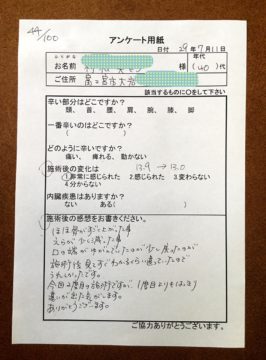 44/100
アンケート用紙
日付 29年7月11日
ふりがな 年代
お名前 様 (40)代
ご住所 富士宮市大岩
該当するものに○をして下さい
辛い部分はどこですか?
頭、首、腰、肩、腕、膝、脚
一番辛いのはどこですか?
( )
どのように辛いですか?
痛い、痺れる、動かない
施術後の変化は 13.9→13.0
1.非常に感じられた 2.感じられた 3.変わらない
4.分からない
内臓疾患はありますか?
ない ある( )
施術後の感想をお書きください。
ほほ骨が少し上がった事
えらが少し減った事
口の端がゆがんでいたのが少し戻ったのが
施術後見てすぐわかるくらい違っていたので
うれしかったです。
今回2度目の施術ですが、1度目よりもはっきり
違いが出た気がします。
ありがとうございます。
ご協力ありがとうございます。